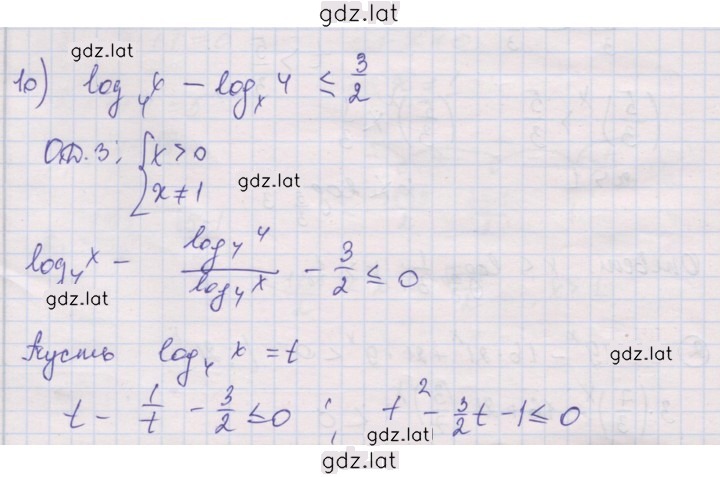 gdz.lat
gdz.lat
10) log₄x − logₓ4 ≤ 3/2
О.Д.З; { x > 0
x ≠ 1
gdz.lat
log₄x − log₄4/log₄x − 3/2 ≤ 0
gdz.lat
Пусть log₄x = t
gdz.lat
t − 1/t − 3/2 ≤ 0 ; t² − 3/2t − 1 ≤ 0
gdz.lat
gdz.lat